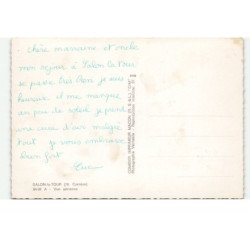 chère marraine et oncle
mon séjour à Salon la Tour
se passe très bien je suis
heureuse il me manque
un peu de soleil je prend
une cure d'air malgré
tout je vous embrasse
bien fort
SALON-la-TOUR (19. Corrèze)
A - Vue aérienne
COMBIER IMPRIMEUR MACON (S.-&-L.) "CIM"